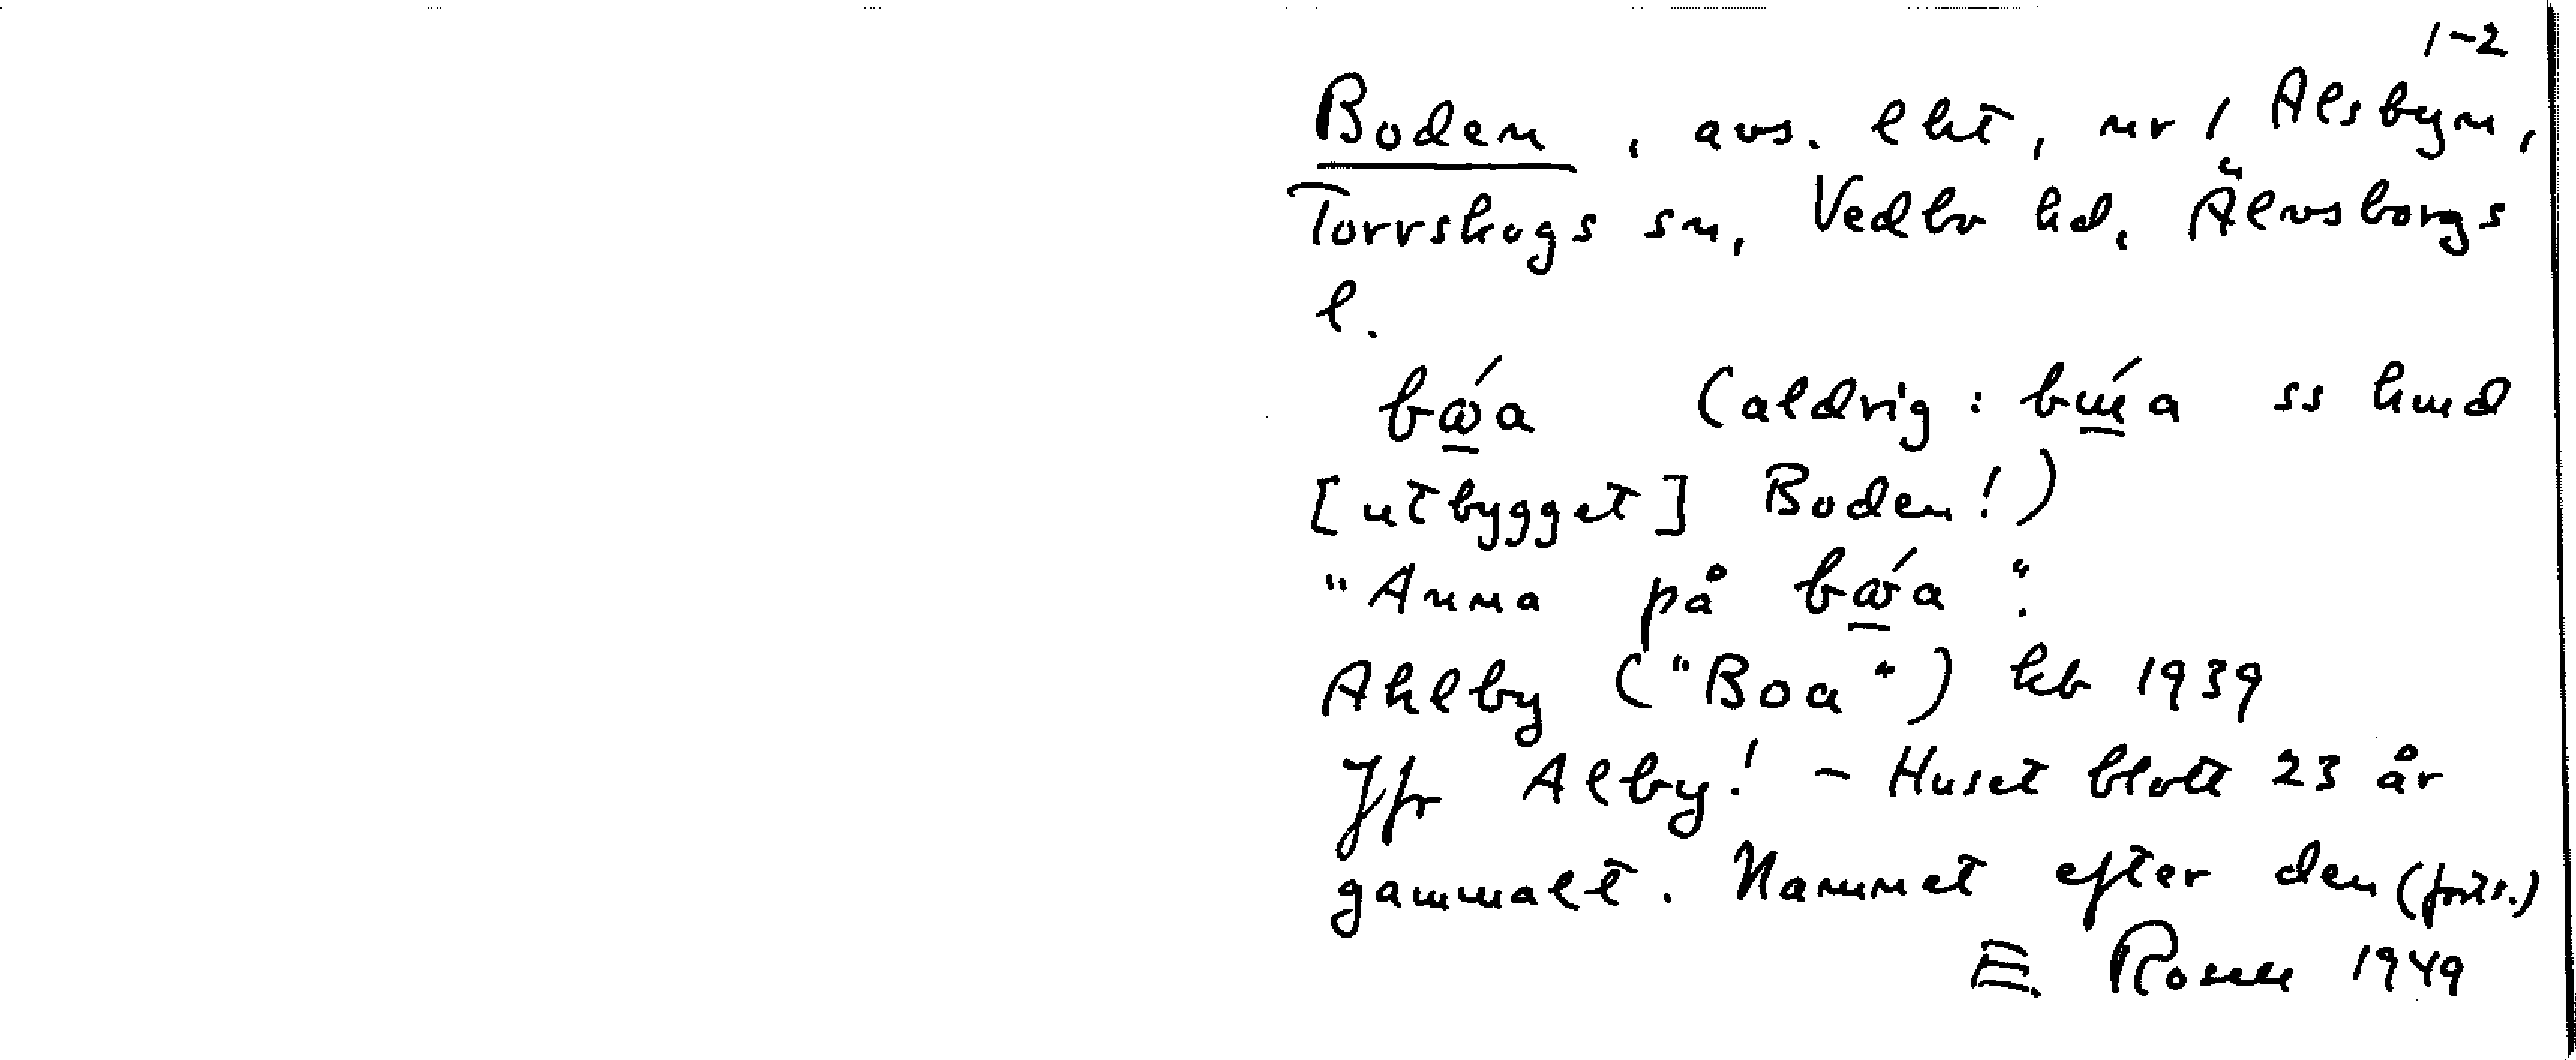 1-2
Boden, avs. lht, nr 1 Alsbyn,
Torrskogs sn, Vedbo hd, Älvsborgs
l.
bώ̲a (aldrig: bɯ̲́a ss hmd
[utbygget] Boden!)
"Anna på bώ̲a".
Ahlby ("Boa") kb 1939
Jfr Alby! - Huset blott 23 år
gammalt. Namnet efter den (forts.)
E. Rosell 1949